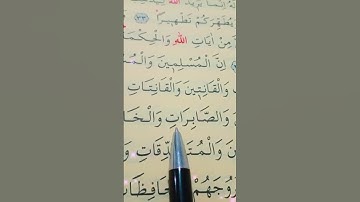 اللّٰهُ
يُطَهِّرَكُمْ تَطْهِيراً ﴿٣٣﴾
مِنْ اٰيَاتِ اللّٰهِ وَالْحِكْمَةِ
اِنَّ الْمُسْلِمِينَ وَالْمُسْ
وَالْقَانِتِينَ وَالْقَانِتَاتِ
وَالصَّابِرَاتِ وَالْخَا
وَالْمُتَصَدِّقَاتِ
رُوجَهُمْ حَافِظَا